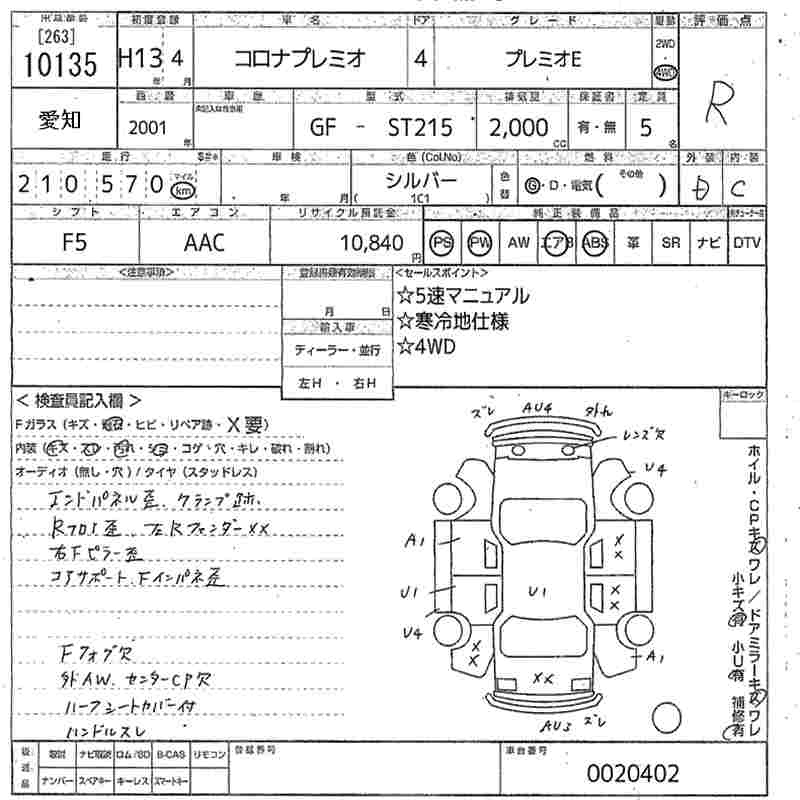 出品番号 初度登録 車名 ドア グレード 駆動 評価点
[263]
10135 H13 年 4 月 コロナプレミオ 4 プレミオE 2WD 4WD R
愛知 西暦 車歴 型式 排気量 保証書 定員
2001 年 GF - ST215 2,000 CC 有・無 5 名
走行 車検 色(Col.No) 燃料 外装 内装
210570 マイル km 年 月 シルバー ( 1C1 ) 色替 G・D・電気( その他 ) D C
シフト エアコン リサイクル預託金 純正装備品
F5 AAC 10,840 円 PS PW AW エアB ABS 革 SR ナビ DTV
<注意事項> 登録書類有効期限 <セールスポイント>
月 日 ☆5速マニュアル
輸入車 ☆寒冷地仕様
ディーラー・並行 ☆4WD
左H ・ 右H
<検査員記入欄> キーロック
Fガラス(キズ・飛石・ヒビ・リペア跡・X要)
内装(キズ・スレ・汚れ・シミ・コゲ・穴・キレ・破れ・割れ)
オーディオ(無し・穴)/タイヤ(スタッドレス)
エンドパネル歪、クランプ跡
Rフロア歪 左RフェンダーXX
右Fピラー歪
コアサポート、Fインパネ歪
Fフォグ穴
外AW、センターCP穴
ハーフシートカバー付
ハンドルスレ
ズレ AU4 外れ
レンズ穴
U4
A1
X X
U1 U1 X X
U4
X X A1
XX
AU3 ズレ
ホイル・CPキズワレ/ドアミラーキズワレ
小キズ有 小U有 補修有
後送品 取説 ナビ取説 ロム/SD B-CAS リモコン 登録番号 車台番号
ナンバー スペアキー キーレス スマートキー 0020402